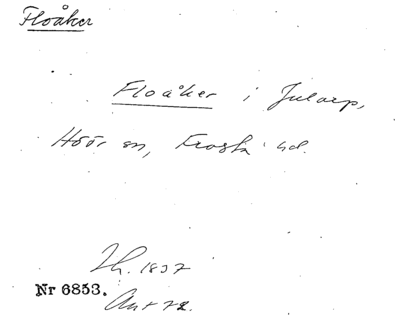 Floåker
Floåker i Jularp,
Höör sn, Frosta hd.
Th. 1837
Nr 6853.
Ant 72.